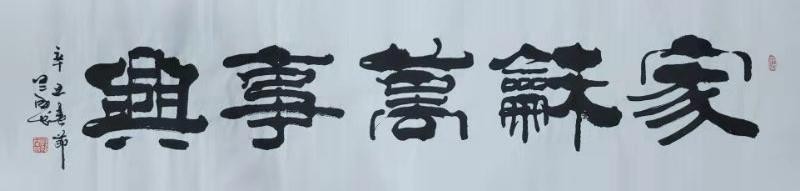 家龢萬事興
辛丑春節